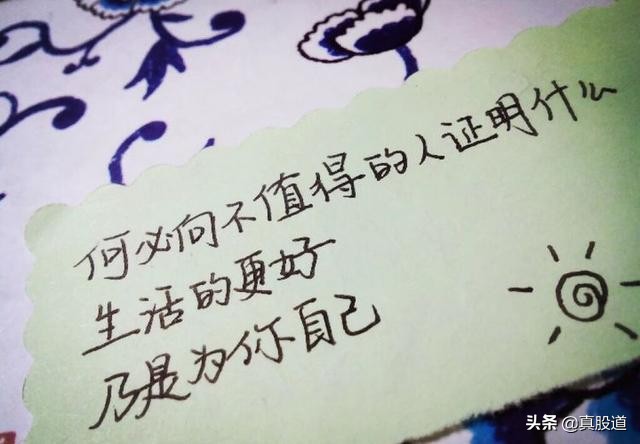 何必向不值得的人证明什么
生活的更好
乃是为你自己
头条 @真股道